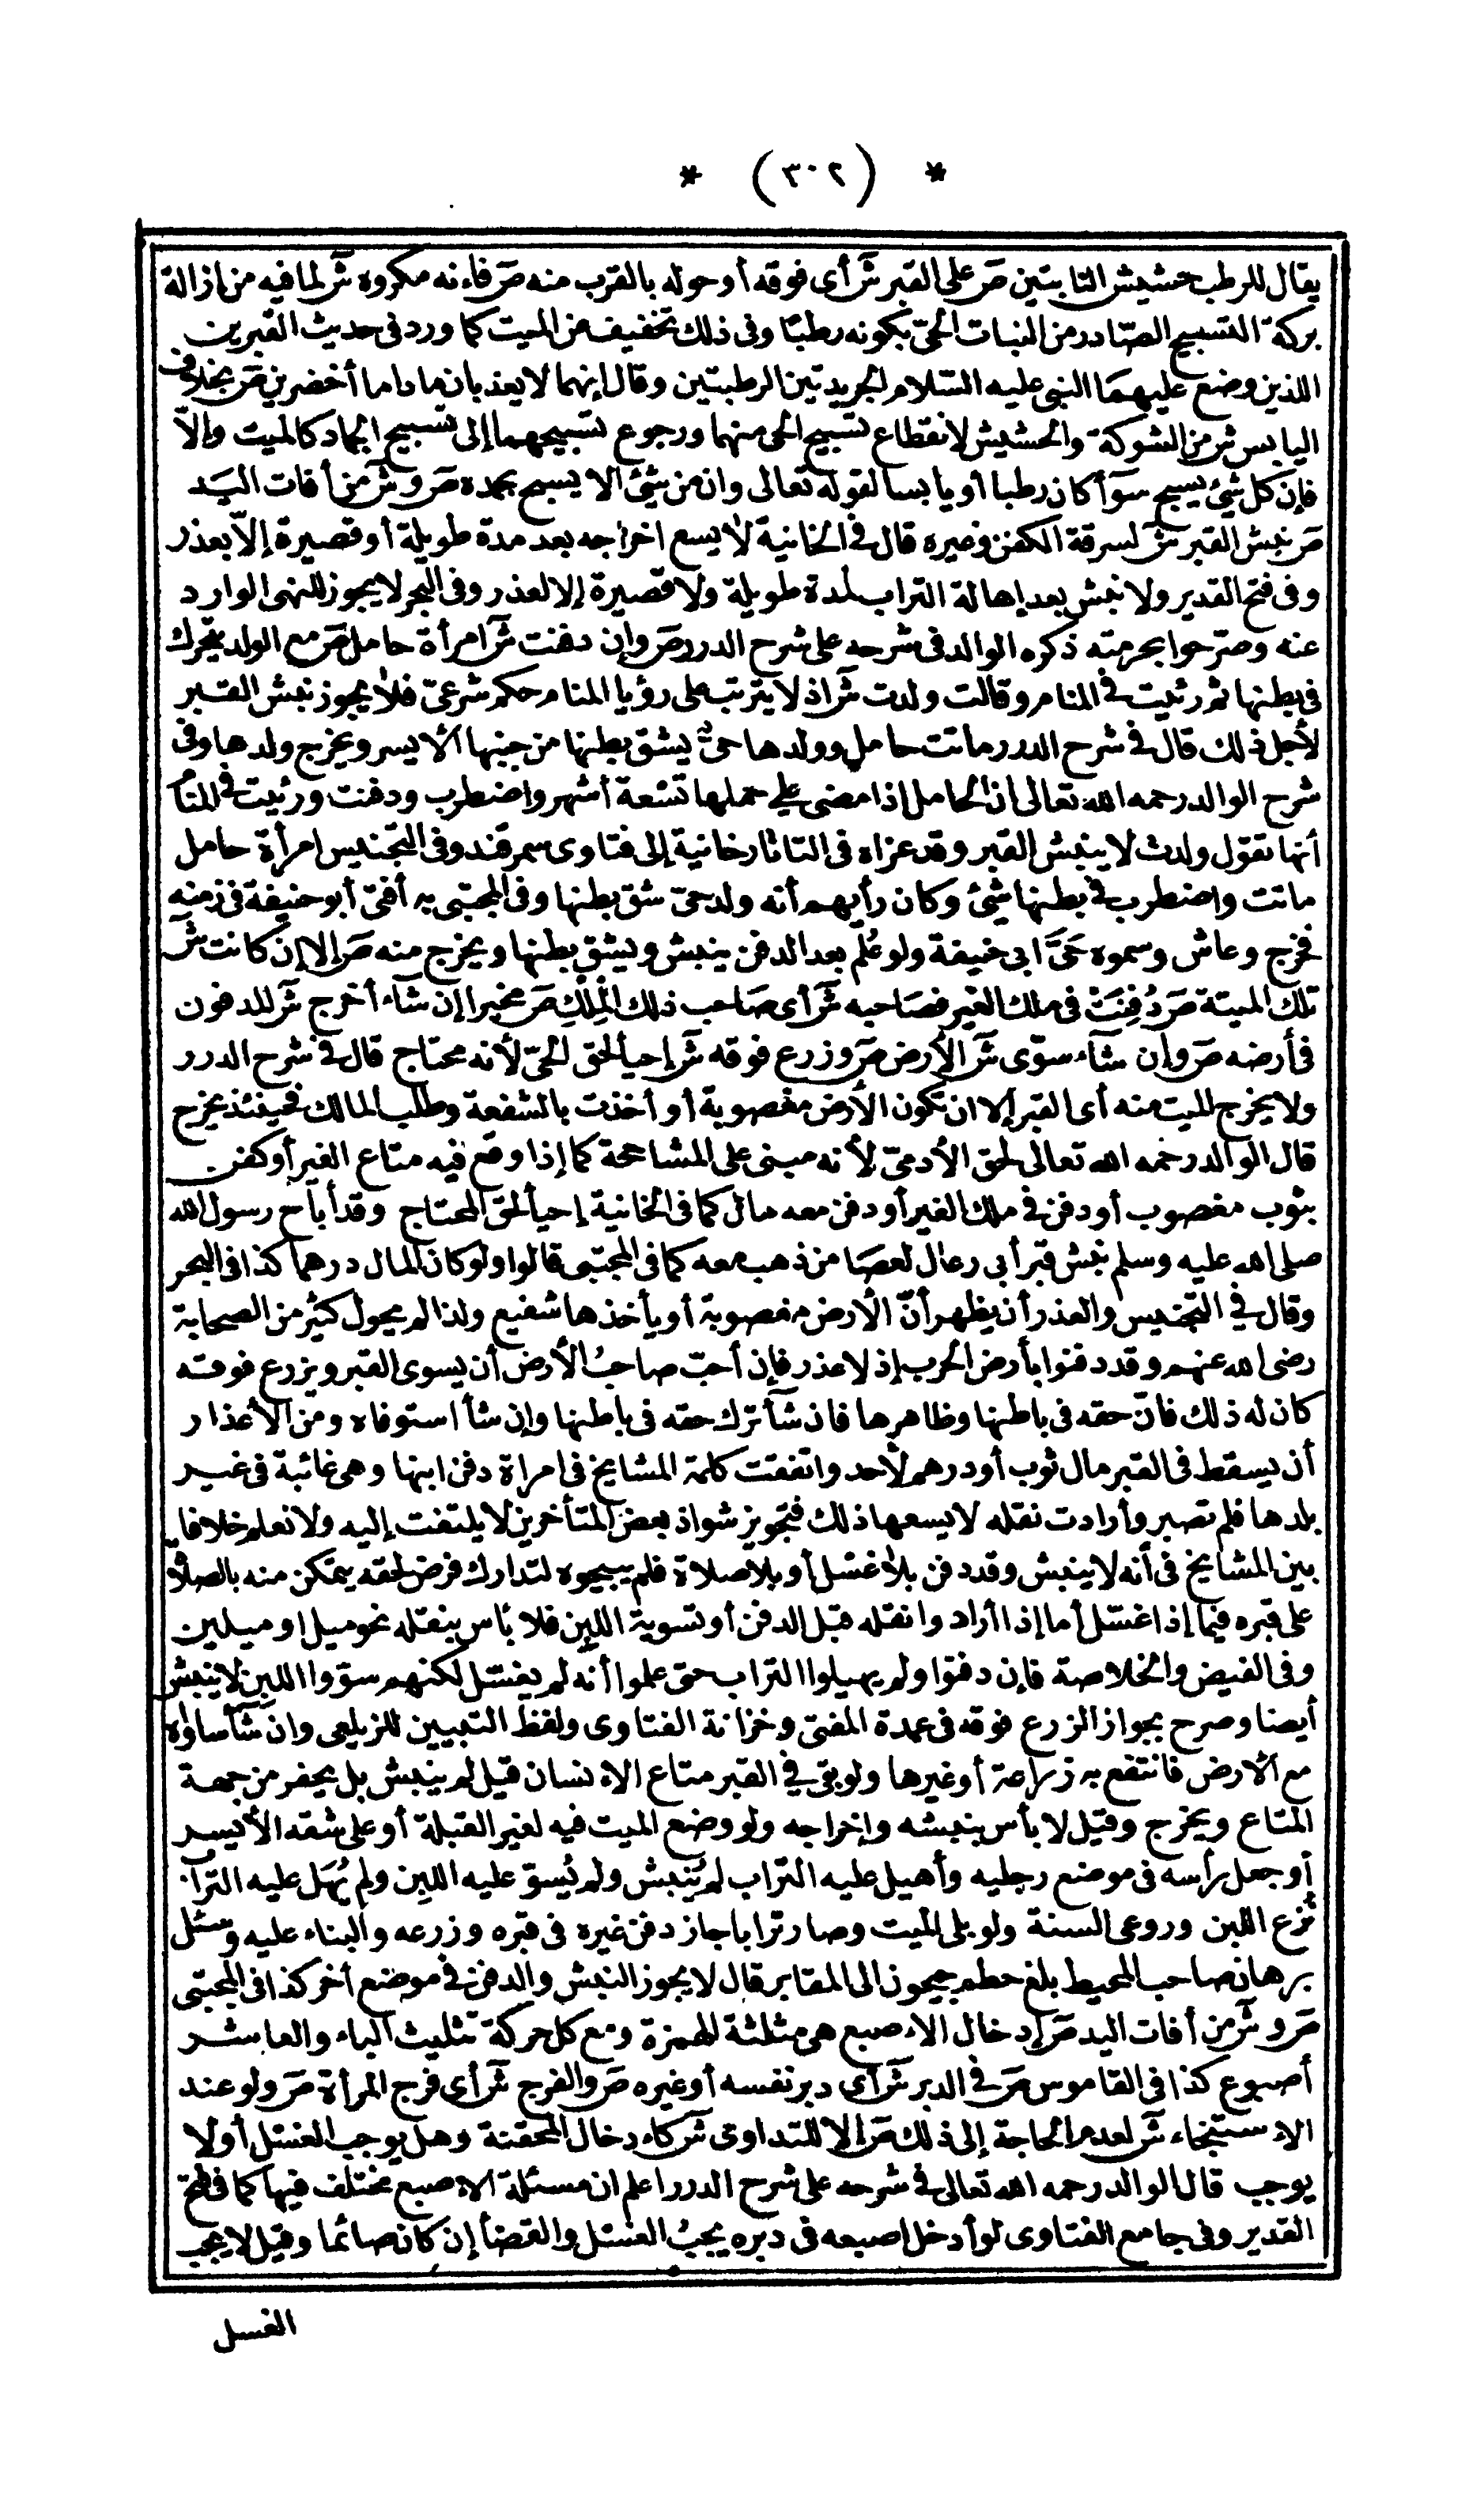 * (٣٠٢) *
يقال للرطب حشيش النابتين صَ على القبر شَ أى فوقه أو حوله بالقرب منه صَ فاءنه مكروه شَ لما فيه من ازالة
بركة التسبيح الصّادر من النبات الحىّ بكونه رطبًا وفى ذلك تخفيف عن الميت كما ورد فى حديث القبرين
اللذين وضع عليهمَا النبى عليه السّلام الجريدتين الرطبتين وقال إنهما لا يعذبان ما داما أخضرين صَ بخلاف
اليابس شَ من الشوكة والحشيش لانقطاع تسبيح الحى منهما ورجوع تسبيحهما إلى تسبيح الجماد كالميت وإلّا
فإن كل شئ يسبح سوآ أكان رطبا أو يابسا لقوله تعالى وان من شئ الا يسبح بحمده صَ و شَ من أفات اليَد
صَ نبش القبر شَ لسرقة الكفن وغيره قال فى الخانية لا يسع اخراجه بعد مدة طويلة أو قصيرة إلّا بعذر
وفى فتح القدير ولا نبش بعد إهالة التراب لمدة طويلة ولا قصيرة إلا لعذر وفى البحر لا يجوز للنهى الوارد
عنه وصرّحوا بحرمته ذكره الوالد فى شرحه على شرح الدرر صَ وإن دفنت شَ امرأة حامل صَ مع الولد يتحرك
فى بطنها ثم رئيت فى المنام وقالت ولدت شَ اذ لا يترتب على رؤيا المنام حكم شرعىّ فلا يجوز نبش القبر
لأجل ذلك قال فى شرح الدرر ماتت حامل وولدها حىّ يشق بطنها من جنبها الأيسر ويخرج ولدها وفى
شرح الوالد رحمه الله تعالى ان الحامل اذا مضى على حملها تسعة أشهر واضطرب ودفنت ورئيت فى المنام
أنها تقول ولدت لا ينبش القبر وقد عزاه فى التاتارخانية إلى فتاوى سمرقند وفى التجنيس امرأة حامل
ماتت واضطرب فى بطنها شئ وكان رأيهم أنه ولد حى شق بطنها وفى المجتبى به أفتى أبو حنيفة فى زمنه
فخرج وعاش وسموه حَىَّ ابى حنيفة ولو عُلم بعد الدفن ينبش ويشق بطنها ويخرج منه صَ إلا إن كانت شَ
تلك الميتة صَ دُفِنَتْ فى ملك الغير فصَاحبه شَ أى صَاحب ذلك المِلكِ صَ مخير إن شآء أخرج شَ للمدفون
فى أرضه صَ وإن شآء سوّى شَ الأرض صَ وزرع فوقه شَ إحيآ لحق الحىّ لأنه محتاج قال فى شرح الدرر
ولا يخرج الميت منه أى القبر إلا ان تكون الأرض مغصوبة أو أخذت بالشفعة وطلب المالك فحينئذ يخرج
قال الوالد رحمه الله تعالى لحق الأدمىّ لأنه مبنى على المشاححة كما إذا وقع فيه متاع الغير أو كفن
بثوب مغصوب أو دفن فى ملك الغير أو دفن معه مال كما فى الخانية إحيآ لحق المحتاج وقد أباح رسول الله
صلى الله عليه وسلم نبش قبر أبى رعال لعصًا من ذهب معه كما فى المجتبى قالوا ولو كان المال درهما كذا فى البحر
وقال فى التجنيس والعذر أن يظهر أنّ الأرض مغصوبة أو يأخذها شفيع ولذا لم يحول كثير من الصحابة
رضى الله عنهم وقد دفنوا بأرض الحرب إذ لا عذر فإن أحبّ صاحبُ الأرض أن يسوى القبر ويزرع فوقه
كان له ذلك فان حقه فى باطنها وظاهرها فان شآء ترك حقه فى باطنها وإن شآ استوفاه ومن الأعذار
أن يسقط فى القبر مال ثوب أو درهم لأحد واتفقت كلمة المشايخ فى امراة دفن ابنها وهى غائبة فى غير
بلدها فلم تصبر وأرادت نقله لا يسعها ذلك فتجويز شواذ بعض المتأخرين لا يلتفت إليه ولا نعلم خلافا
بين المشايخ فى أنه لا ينبش وقد دفن بلا غسل أو بلا صلاة فلم يبيحوه لتدارك فرض لحقه يتمكن منه بالصلاة
على قبره فيما إذا غسل أما إذا أرادوا نقله قبل الدفن أو تسوية اللبن فلا بأس بنقله نحو ميل او ميلين
وفى الفيض والخلاصة فإن دفنوا ولم يهيلوا التراب حتى علموا أنه لم يغسل لكنهم سوّوا اللبن لا ينبش
أيضا وصرح بجواز الزرع فوقه فى عمدة المفتى وخزانة الفتاوى ولفظ التبيين للزيلعى وان شآ ساواه
مع الأرض فانتفع به زراعة أو غيرها ولو بقى فى القبر متاع الاءنسان قيل لم ينبش بل يحفر من جهة
المتاع ويخرج وقيل لا بأس بنبشه وإخراجه ولو وضع الميت فيه لغير القبلة أو على شقه الأيسر
أو جعل رأسه فى موضع رجليه وأهيل عليه التراب لم يُنبش ولو سُوّى عليه اللبن ولم يُهَل عليه التراب
نُزع اللبن وروعى السنة ولو بلى الميت وصار ترابا جاز دفن غيره فى قبره وزرعه والبناء عليه وسئل
برهان صاحب المحيط بلغ حطم جيحون الى المقابر قال لا يجوز النبش والدفن فى موضع أخر كذا فى المجتبى
صَ و شَ من أفات اليد صَ إدخال الاءصبع هى مثلثة الهمزة ومع كل حركة تثليث الباء والعاشر
أصبوع كذا فى القاموس صَ فى الدبر شَ أى دبر نفسه أو غيره صَ والفرج شَ أى فرج المرأة صَ ولو عند
الاءستنجاء شَ لعدم الحاجة إلى ذلك صَ إلا للتداوى شَ كاءدخال المحقنة وهل يوجب الغسل أو لا
يوجب قال الوالد رحمه الله تعالى فى شرحه على شرح الدرر اعلم ان مسئلة الاءصبع مختلف فيها كما فى فتح
القدير وفى جامع الفتاوى لو أدخل اصبعه فى دبره يجبُ الغسل والقضآ إن كان صائما وقيل لا يجب
الغسل